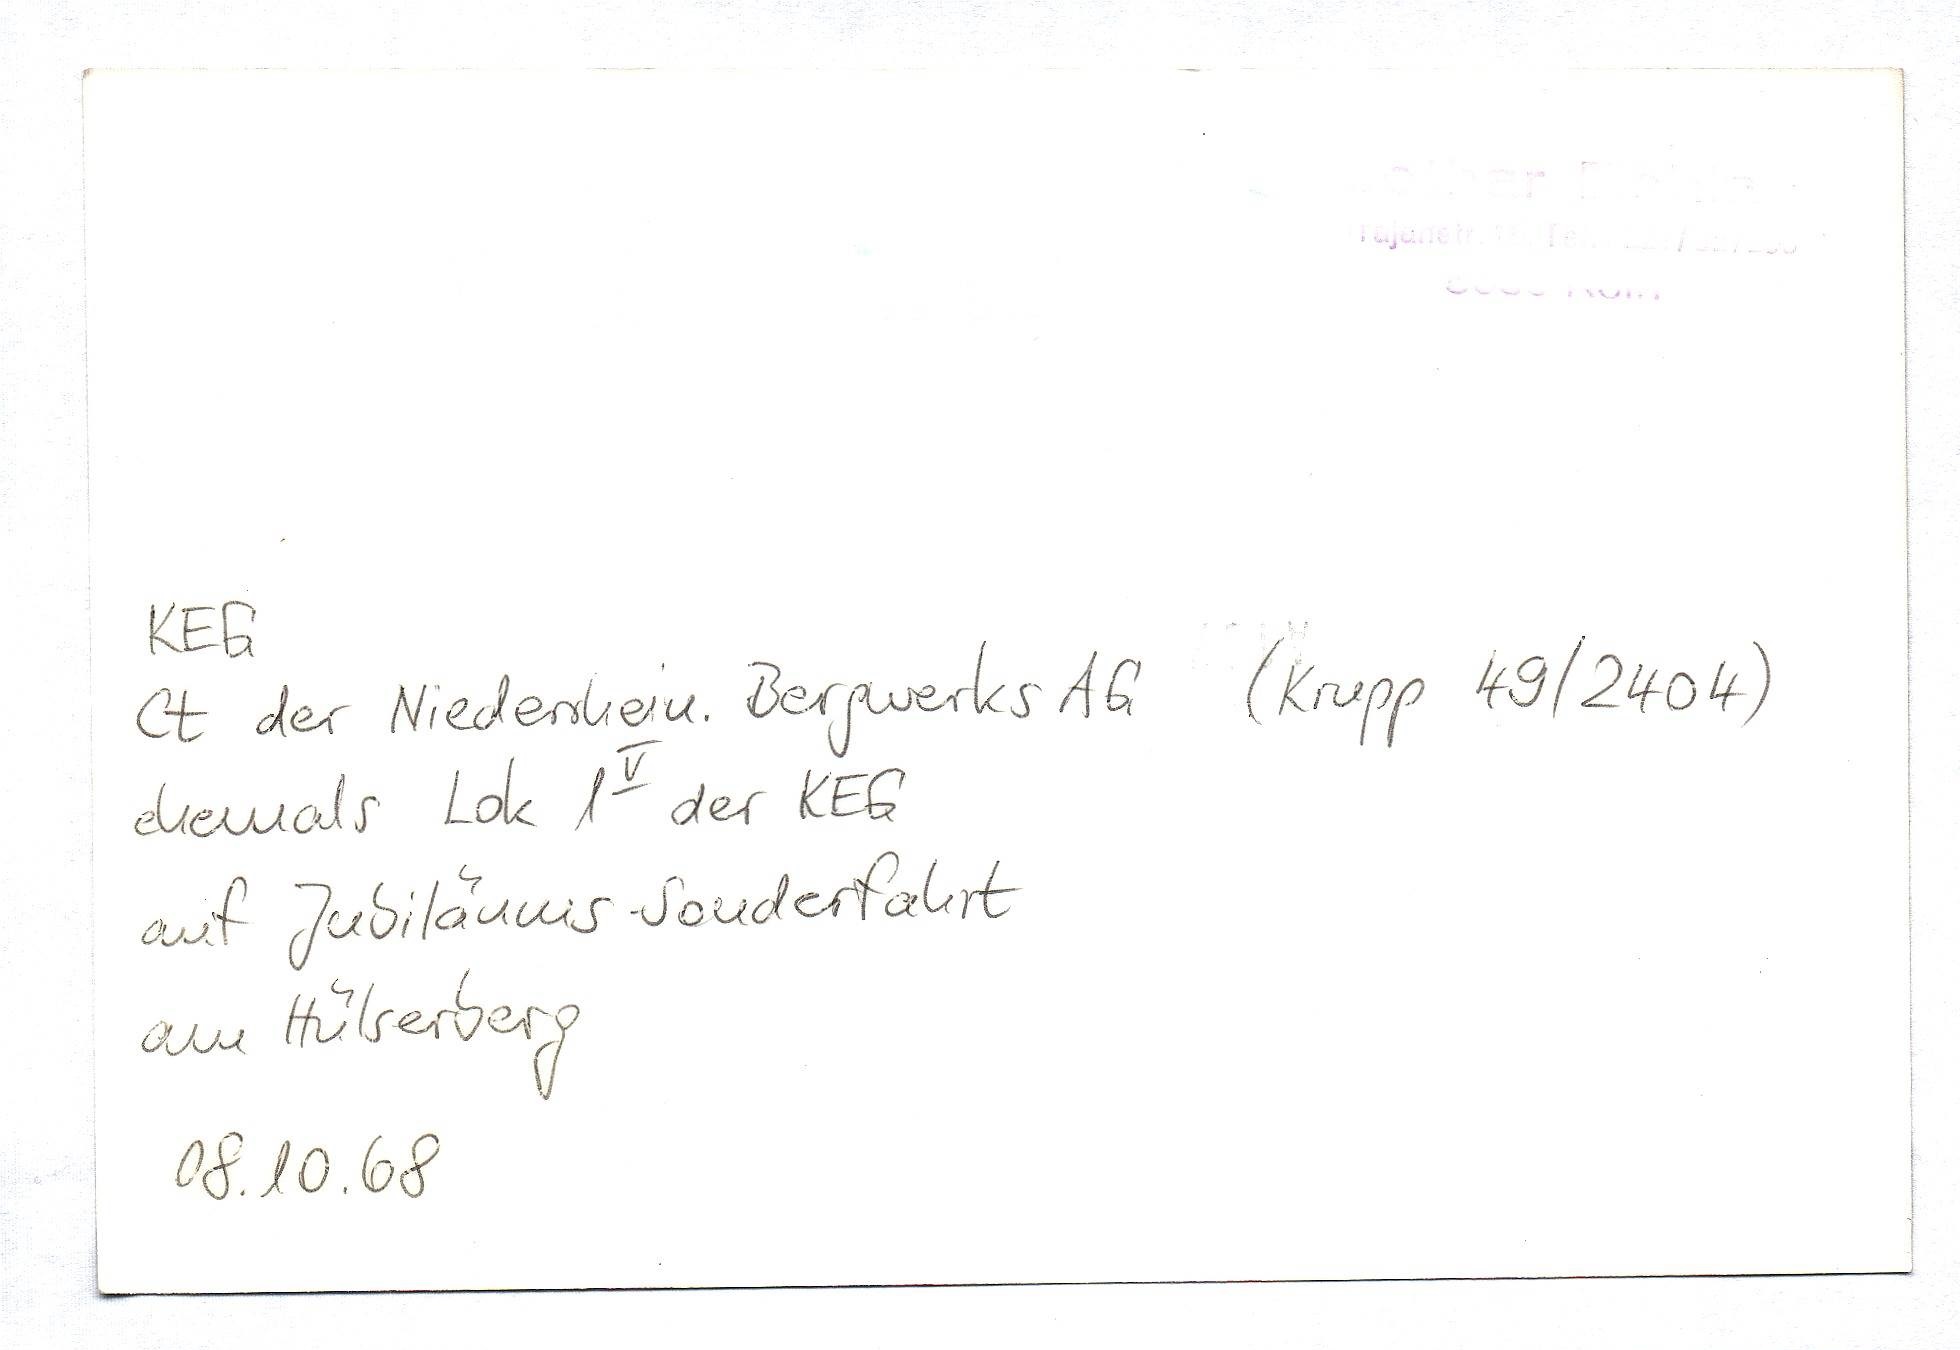 KEG
Ct der Niederrhein. Bergwerks AG (Krupp 49/2404)
ehemals Lok 1 V der KEG
auf Jubiläums-Sonderfahrt
am Hülserberg
08.10.68